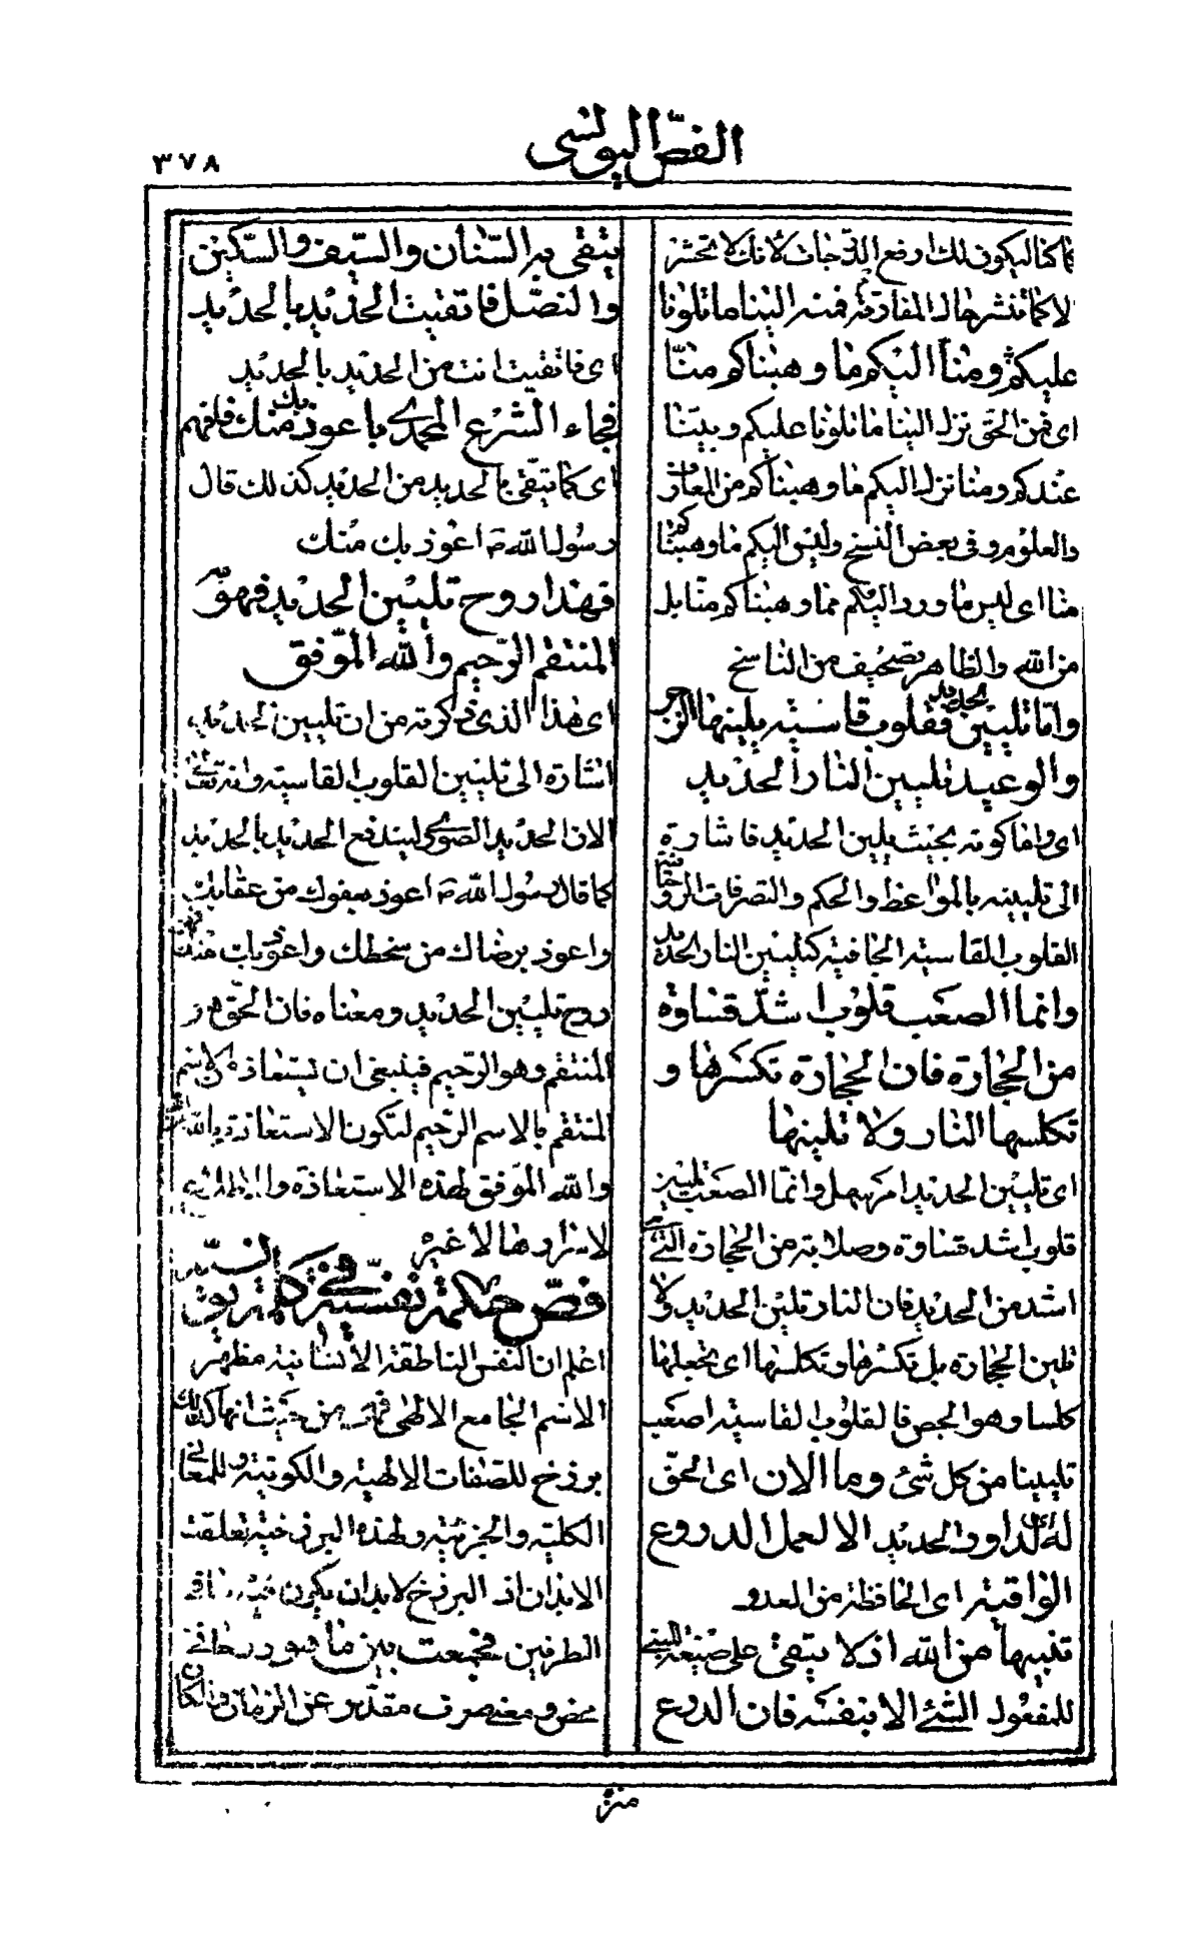 الفصّ اليونسى
٣٧٨
كما كنا ليكون لك ارفع الدرجات لانك لا تحشر
لا كما تنشر حال المفارقة فمنه الينا ما تلونا
عليكم ومنا اليكم ما وهبناكم منّا
اى فمن الحق نزل الينا ما تلونا عليكم وبيّنا
عندكم ومنا نزل اليكم ما وهبناكم من المعارف
والعلوم وفى بعض النسخ وليس اليكم ما وهبناكم
منا اى ليس ما ورد اليكم مما وهبناكم منّا بل
من الله والظاهر تصحيف من الناسخ
وامّا تليين الحديد فقلوب قاسية يلينها الزجر
والوعيد تليين النار الحديد
اى واما كونه بحيث يلين الحديد فاشارة
الى تليينه بالمواعظ والحكم والتصرفات الروحانية
القلوب القاسية الجافية كتليين النار الحديد
وانما الصعب قلوب اشدّ قساوة
من الحجارة فان الحجارة تكسرها و
تكلسها النار ولا تلينها
اى تليين الحديد امر سهل وانمّا الصعب تليين
قلوب اشد قساوة وصلابة من الحجارة التى هى
اشد من الحديد فان النار تلين الحديد ولا
تلين الحجارة بل تكسرها وتكلسها اى تجعلها
كلسا وهو الجص فالقلوب القاسية اصعب
تليينا من كل شئ وما الان اى الحقّ
له اى لداود الحديد الا لعمل الدروع
الواقية اى الحافظة من العدو
تنبيها من الله اذ لا يتقى على صيغة المبنى
للمفعول الشئ الا بنفسه فان الدرع
يتقى به السّنان والسّيف والسّكين
والنصّل فاتقيت الحديد بالحديد
اى فاتقيت انت من الحديد بالحديد
فجاء الشرع المحمدى باعوذ بك منك فافهم
اى كما تتقى بالحديد من الحديد كذلك قال
رسول الله ص اعوذ بك منك
فهذا روح تليين الحديد فهو
المنتقم الرّحيم والله الموّفق
اى هذا الذى ذكرته من ان تليين الحديد
اشارة الى تليين القلوب القاسية وانه تعالى
الان الحديد الصورى ليندفع الحديد بالحديد
كما قال رسول الله ص اعوذ بعفوك من عقابك
واعوذ برضاك من سخطك واعوذ بك منك فهذا
روح تليين الحديد ومعناه فان الحقّ هو
المنتقم وهو الرّحيم فينبغى ان يستعاذ من الاسم
المنتقم بالاسم الرّحيم لتكون الاستعاذة بالله
والله الموفق لهذه الاستعاذة
لا غير
فصّ حكمة نفسيّة فى كلمة يونسيّة
اعلم ان النفس الناطقة الانسانية مظهر
الاسم الجامع الالهى فهى من حيث انها كذلك
برزخ للصّفات الالهية والكونية وللمعانى
الكلية والجزئية ولهذه البرزخية تعلقت
الابدان اذ البرزخ لا بدان يكون فيه ما فى
الطرفين فجمعت بين ما هو روحانى
محض ومعنى صرف مقدّس عن الزمان والمكان
منزه